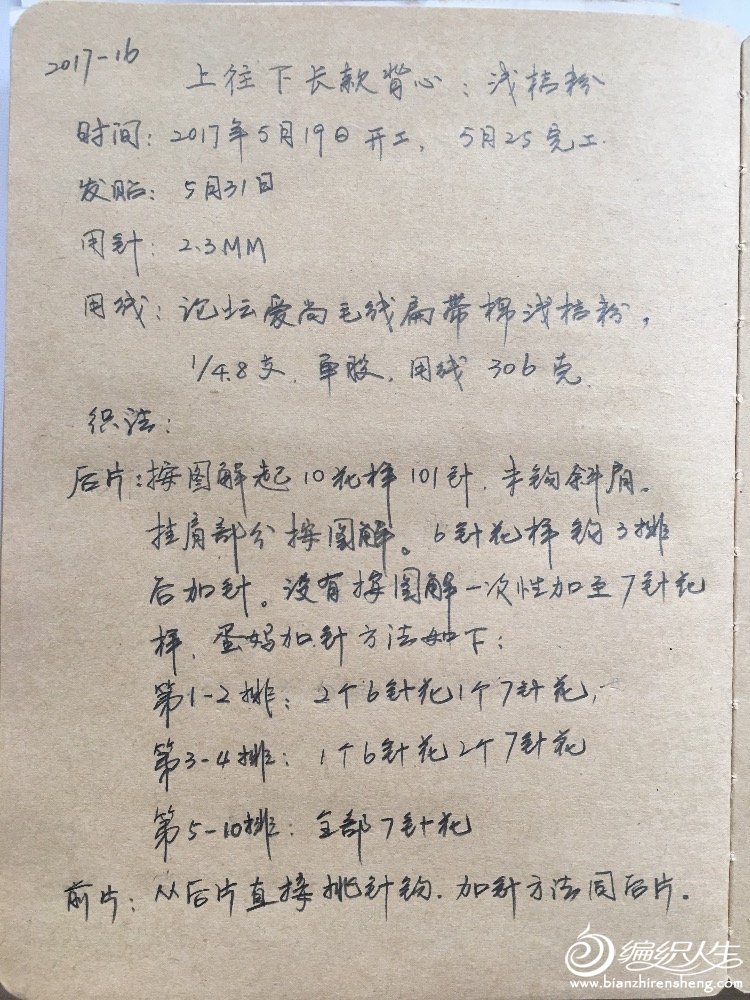 2017-16
上往下长款背心：浅桔粉
时间：2017年5月19日开工，5月25完工.
发贴：5月31日
用针：2.3MM
用线：论坛爱尚毛线扁带棉浅桔粉，
1/4.8支，单股，用线306克.
织法：
后片：按图解起10花样101针，未钩斜肩。
挂肩部分按图解。6针花样钩3排
后加针。没有按图解一次性加至7针花
样，蛋妈加针方法如下：
第1-2排：2个6针花1个7针花，
第3-4排：1个6针花2个7针花
第5-10排：全部7针花
前片：从后片直接挑针钩.加针方法同后片.
编织人生
www.bianzhirensheng.com